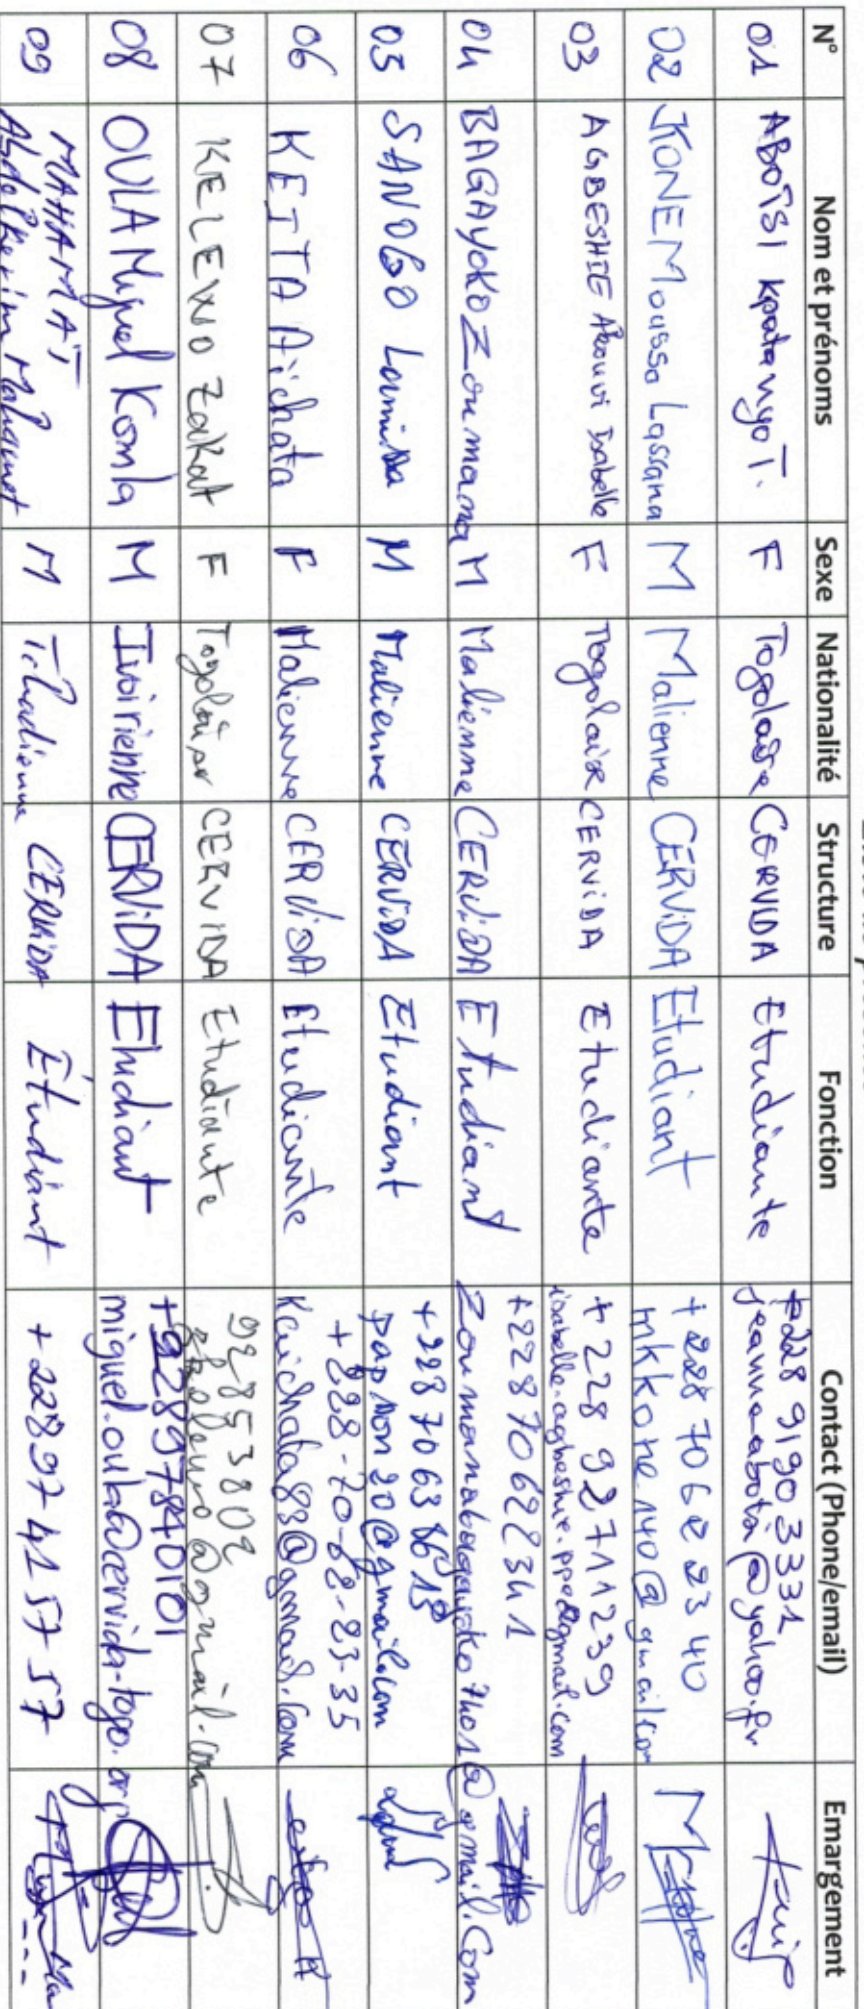 N° Nom et prénoms Sexe Nationalité Structure Fonction Contact (Phone/email) Emargement
01 ABOTSI Kpatanyo T. F Togolaise CERVIDA Etudiante +228 91903331
jeanne-abotsi@yahoo.fr
02 KONE Moussa Lassana M Malienne CERVIDA Etudiant +228 70622340
mkkone140@gmail.com
03 AGBESHIE Akouvi Isabelle F Togolaise CERVIDA Etudiante +228 92711239
isabelle.agbeshie.ppe@gmail.com
04 BAGAYOKO Zoumana M Malienne CERVIDA Etudiant +228 70622341
Zoumanabagayoko7601@gmail.com
05 SANOGO Lamina M Malienne CERVIDA Etudiant +228 70638618
papANon20@gmail.com
06 KEITA Aïchata F Malienne CERVIDA Etudiante +228-70-62-23-35
Kaichata83@gmail.com
07 KELEWO Zakat F Togolaise CERVIDA Etudiante 92853802
@gmail.com
08 OULA Miguel Komla M Ivoirienne CERVIDA Etudiant +22897840101
miguel.oula@cervida-togo.org
09 MAHAMAT M Tchadienne CERVIDA Étudiant +22897415757
Abdelkerim Mahamat